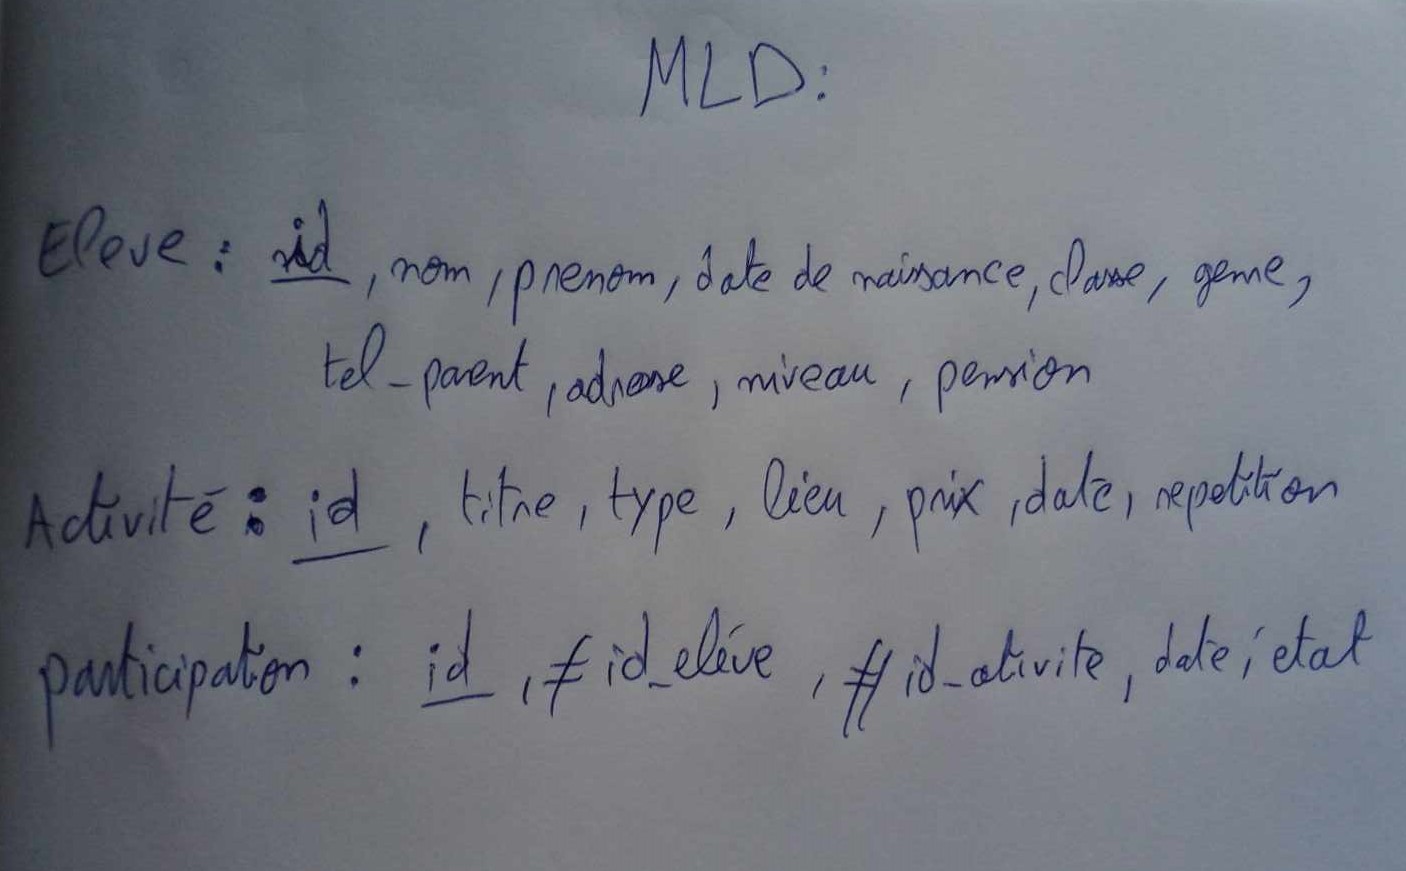 MLD:
Eleve : id , nom , prenom , date de naissance , classe , genre ,
tel_parent , adresse , niveau , pension
Activité : id , titre , type , lieu , prix , date , repetition
participation : id , # id_eléve , # id_ativite , date , etat